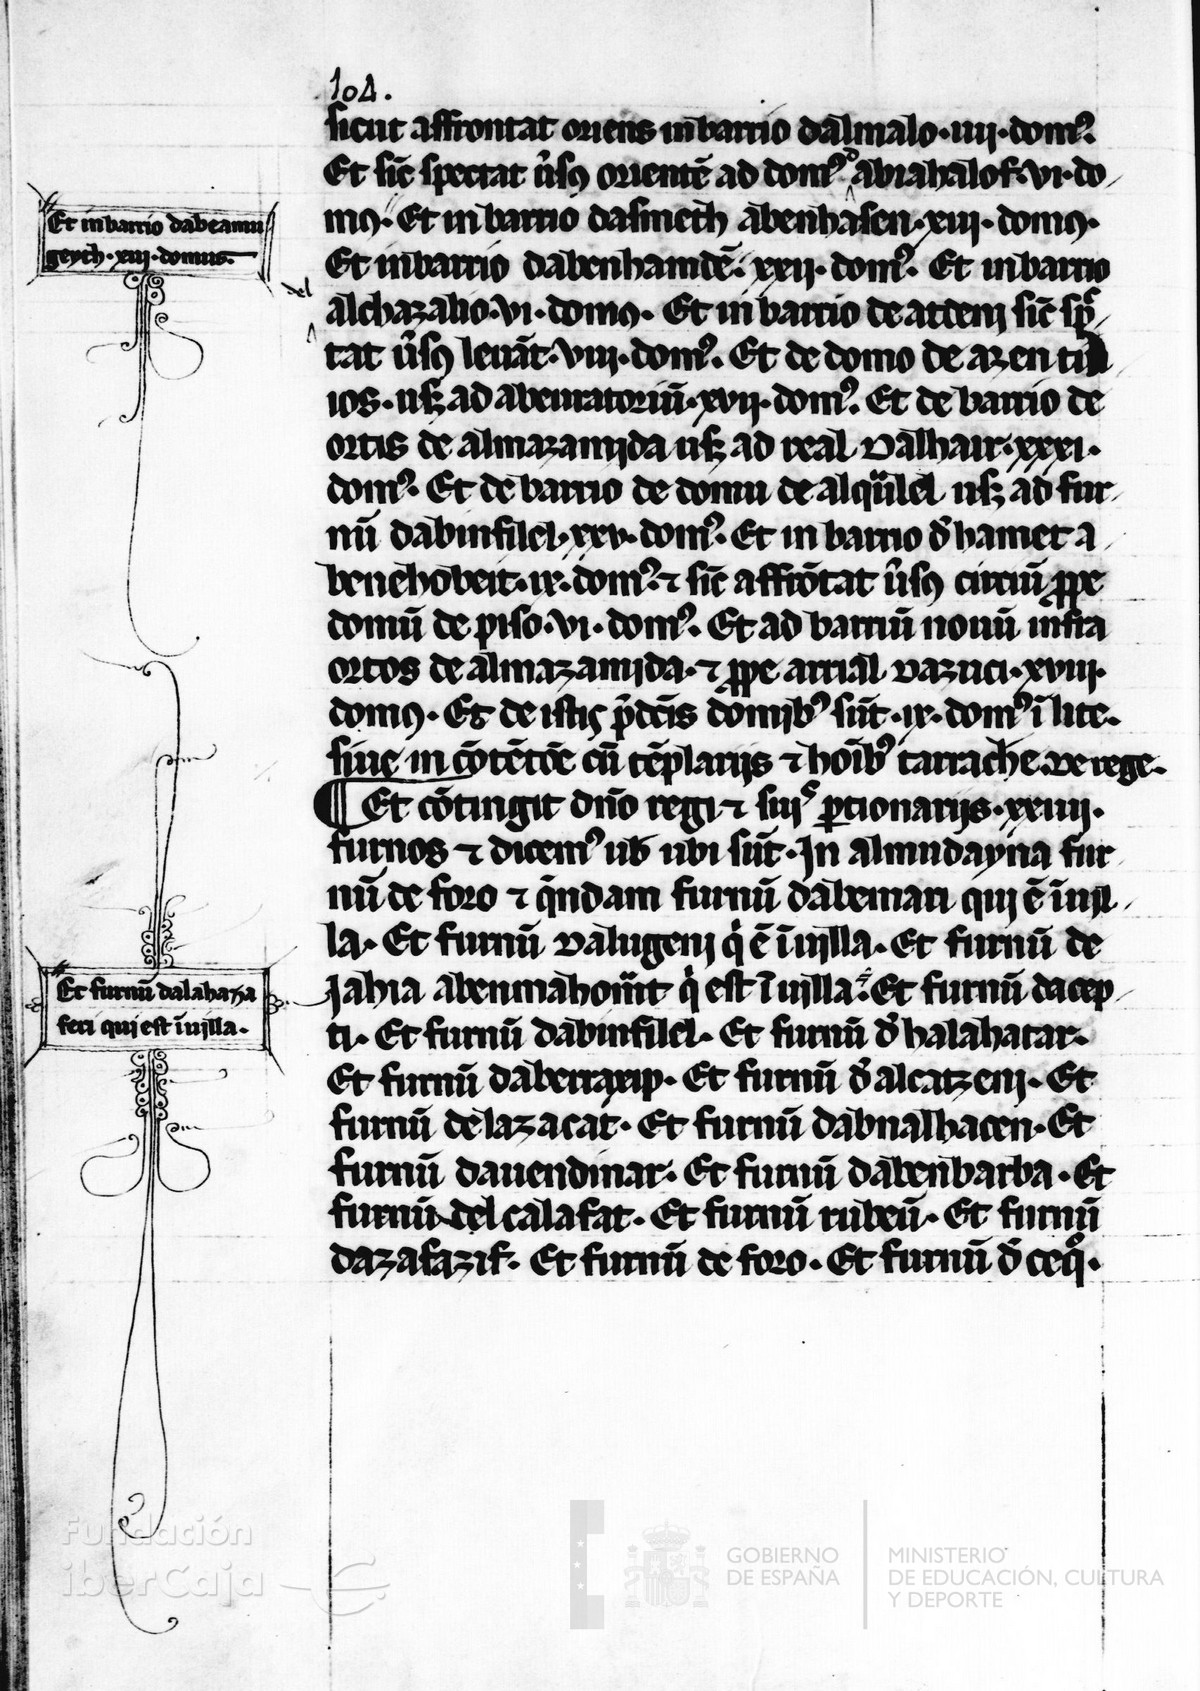 104.
sicut affrontat oriens in barrio dalmalo·iiii·domꝰ.
Et sic̄ spectat ũsꝰ orientē ad domꝰ abrahalof·vi·do
mꝰ· Et in barrio dasmeth abenhasen·xiii·domꝰ·
Et in barrio dabeamu
geych·xiii·domus.
Et in barrio dabenhamdē·xxii·domꝰ. Et in barrio
del
alchazalio·vi·domꝰ· Et in barrio de ardenj sic̄ spc̄
tat ũsꝰ levāt·viii·domꝰ. Et de domo de azen
ios·usqꝫ ad abeuratoriū·xvii·domꝰ. Et de barrio de
ortis de almazamijda usqꝫ ad real dalhair·xxxi·
domꝰ. Et de barrio de domu de alquilel usqꝫ ad fur
nū dabinfilel·xxv·domꝰ. Et in barrio đ hamet a
benehobeit·ix·domꝰ. ⁊ sic̄ affrōtat ũsꝰ circiū ꝓpe
domū de piso·vi·domꝰ. Et ad barriū nouū infra
ortos de almazamijda· ⁊ ꝓpe arrial dazuci·xviii·
domꝰ· Et de istis p̄dc̄is domijbꝰ sūt·ix·domꝰ ī lite.
siue in cōtētōe cū tēplarijs ⁊ hoībꝰ tarrache. de rege.
¶ Et cōtingit dn̄o regi ⁊ suiˢ ꝑtionarijs·xxiiii·
furnos ⁊ dicemꝰ ub ubi sūt· In almudayna fur
nū de foro ⁊ q̄ndam furnū dabennari qui ē ī uil
la· Et furnū dalugenj q̇ ē ī uilla· Et furnū de
Et furnū dalahaza
feri qui est ī uilla·
Jahia abenmahomat q̇ est ī uilla· Et furnū dacep
ti· Et furnū dabinfilel· Et furnū đ halahatar·
Et furnū daberraxip· Et furnū đ alcatzenj· Et
furnū delazacat· Et furnū dabnalhacen· Et
furnū dauendinar· Et furnū dabenbarba· Et
furnū del calafat· Et furnū rubeū· Et furnū
dazafazif· Et furnū de foro· Et furnū đ ceqͦ·
Fundación
iberCaja
GOBIERNO
DE ESPAÑA
MINISTERIO
DE EDUCACIÓN, CULTURA
Y DEPORTE